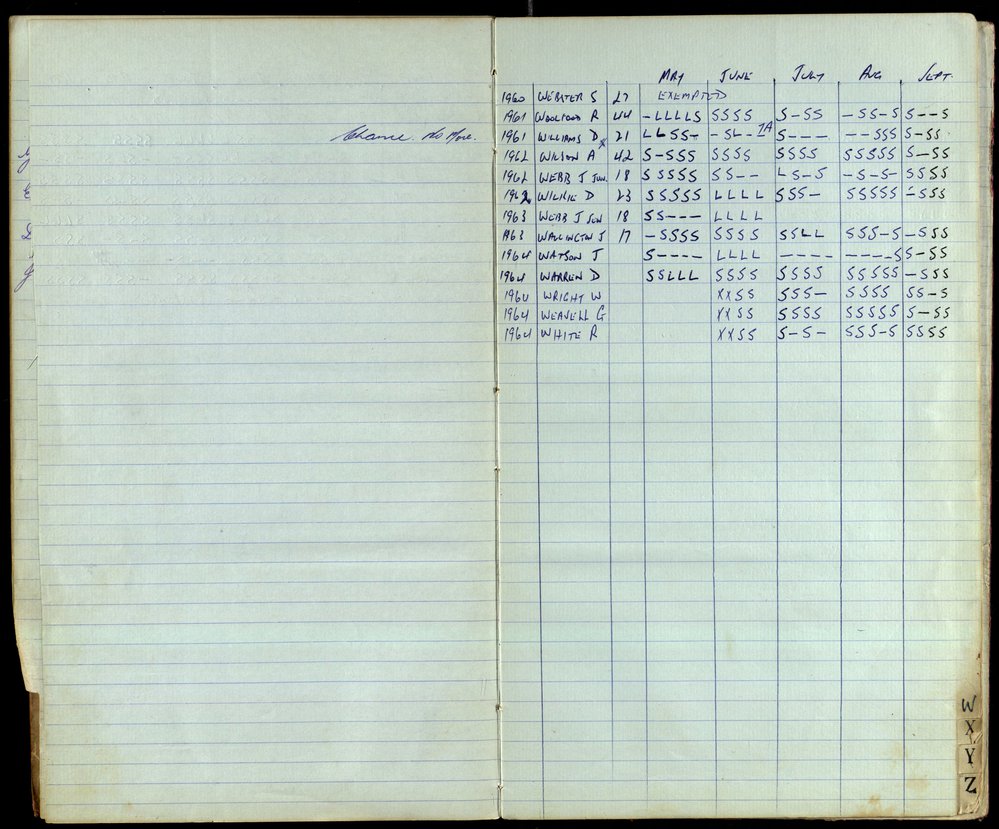 MAY JUNE JULY AUG SEPT.
1960 WEBSTER S 27 EXEMPTED
1961 WOOLFORD R 44 -LLLLS SSSS S-SS -SS-S S--S
1961 WILLIAMS D x 21 LLSS- -SL-- IA S--- --SSS S-SS
1962 WILSON A 42 S-SSS SSSS SSSS SSSSS S-SS
1962 WEBB J JUN. 18 SSSSS SS-- LS-S -S-S- SSSS
1962 WILKIE D 23 SSSSS LLLL SSS- SSSSS -SSS
1963 WEBB J SEN 18 SS--- LLLL
1963 WALLINGTON J 17 -SSSS SSSS SSLL SSS-S -SSS
1964 WATSON J S---- LLLL ---- ----S S-SS
1964 WARREN D SSLLL SSSS SSSS SSSSS -SSS
1964 WRIGHT W XXSS SSS- SSSS SS-S
1964 WEAVELL G XXSS SSSS SSSSS S-SS
1964 WHITE R XXSS S-S- SSS-S SSSS
No More.
W
X
Y
Z